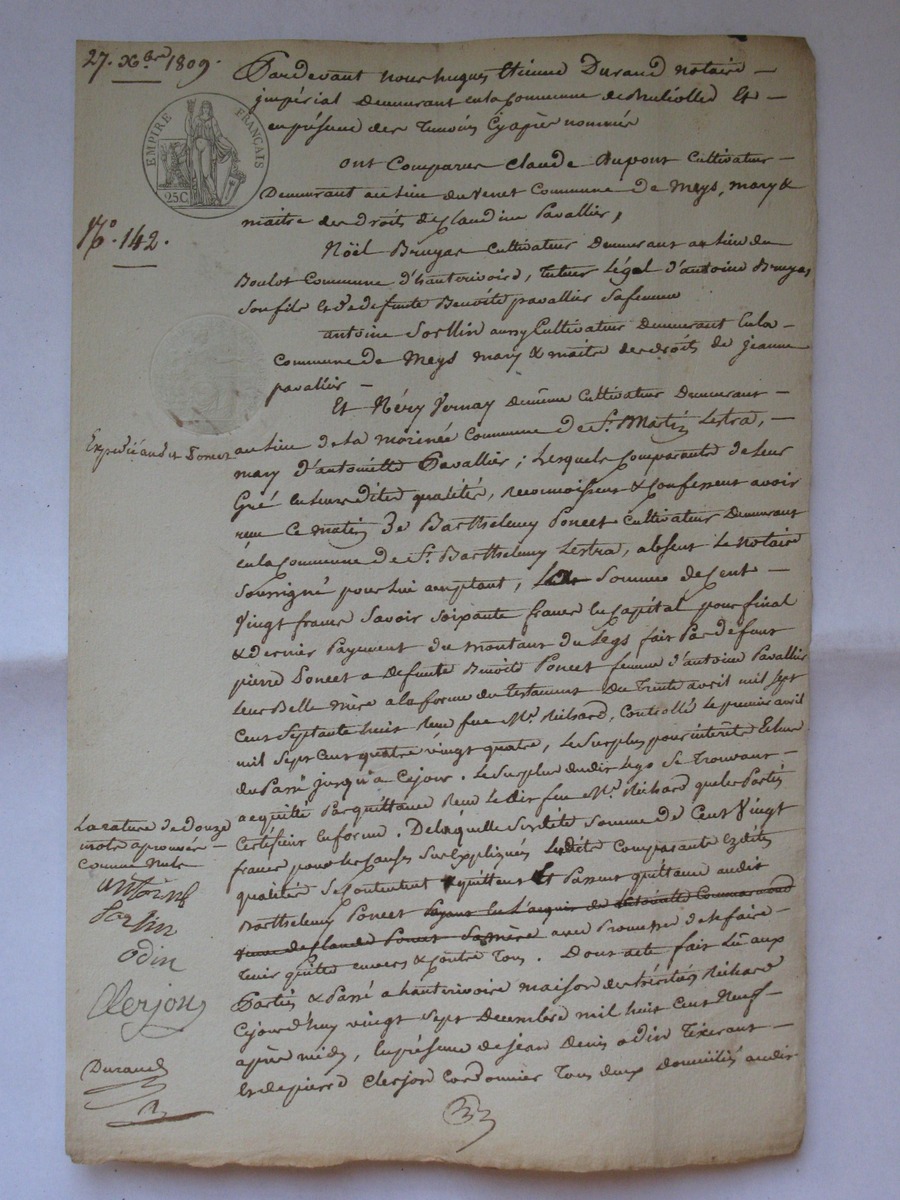 27. Xbre 1809.
EMPIRE FRANÇAIS
25C
N.o 142.
Expedié audit Poncet
La rature de douze
mots aprouvée
comme nuls
antoine
Sorlin
odin
Clerjon
Durand
Pardevant nous hugues Etienne Durand notaire
impérial demeurant en la Commune de Et
en présence des Temoins Cy après nommés
ont Comparus Claude Dupont Cultivateur
Demeurant au lieu du Venet Commune de Meys, mary &
maitre des droits de Claudine Pavallier,
Noël Bruyas Cultivateur demeurant au lieu du
Boulot Commune d'hauterivoire, tuteur légal d'antoine Bruyas
son fils et de defunte Benoite pavallier sa femme
antoine Sorllin aussy Cultivateur demeurant en la
Commune de Meys mary & maitre des droits de jeanne
pavallier
Et Néry Vernay demême Cultivateur demeurant
au lieu de la morinée Commune de St. Martin Lestra,
mary d'antoinette Pavallier; Lesquels Comparants de leur
Gré en leurs dites qualités, reconnoissent & Confessent avoir
reçu Ce matin de Barthelemy Poncet Cultivateur Demeurant
en la Commune de St. Barthelemy Lestra, absent Le Notaire
soussigné pour lui aceptant, La Somme de Cent
Vingt francs Savoir soixante francs en Capital pour final
& dernier Payement du montant du Legs fait Par defunt
pierre Poncet a defunte Benoite Poncet femme d'antoine Pavallier
Leur Belle mère a la forme du Testament du Trente avril mil sept
Cent Septante huit Reçu feu Me. Richard, Controllé Le premier avril
mil Sept Cent quatre vingt quatre, Le Surplus pour intérêts Echus
du Passé jusqu'à Ce jour. Le Surplus dudit Legs Se Trouvant
acquité Par quittance Reçu Ledit feu Me. Richard que les Parties
Certifient en forme. De laquelle Susdite Somme de Cent Vingt
francs pour les Causes Sus Expliqués Lesdits Comparants Ezdites
qualités se Contentent quittent Et Passent quittance audit
Barthelemy Poncet
avec Promesse de le faire
Tenir quitte envers & Contre Tous. Dont acte fait Lu aux
Parties & Passé a hauterivoire maison des héritiers Richard
Cejourd'huy vingt Sept Decembre mil huit Cent Neuf
après midy, En présence de jean Denis odin Tixerant
Et de pierre Clerjon Cordonnier Tous deux domiciliés audit